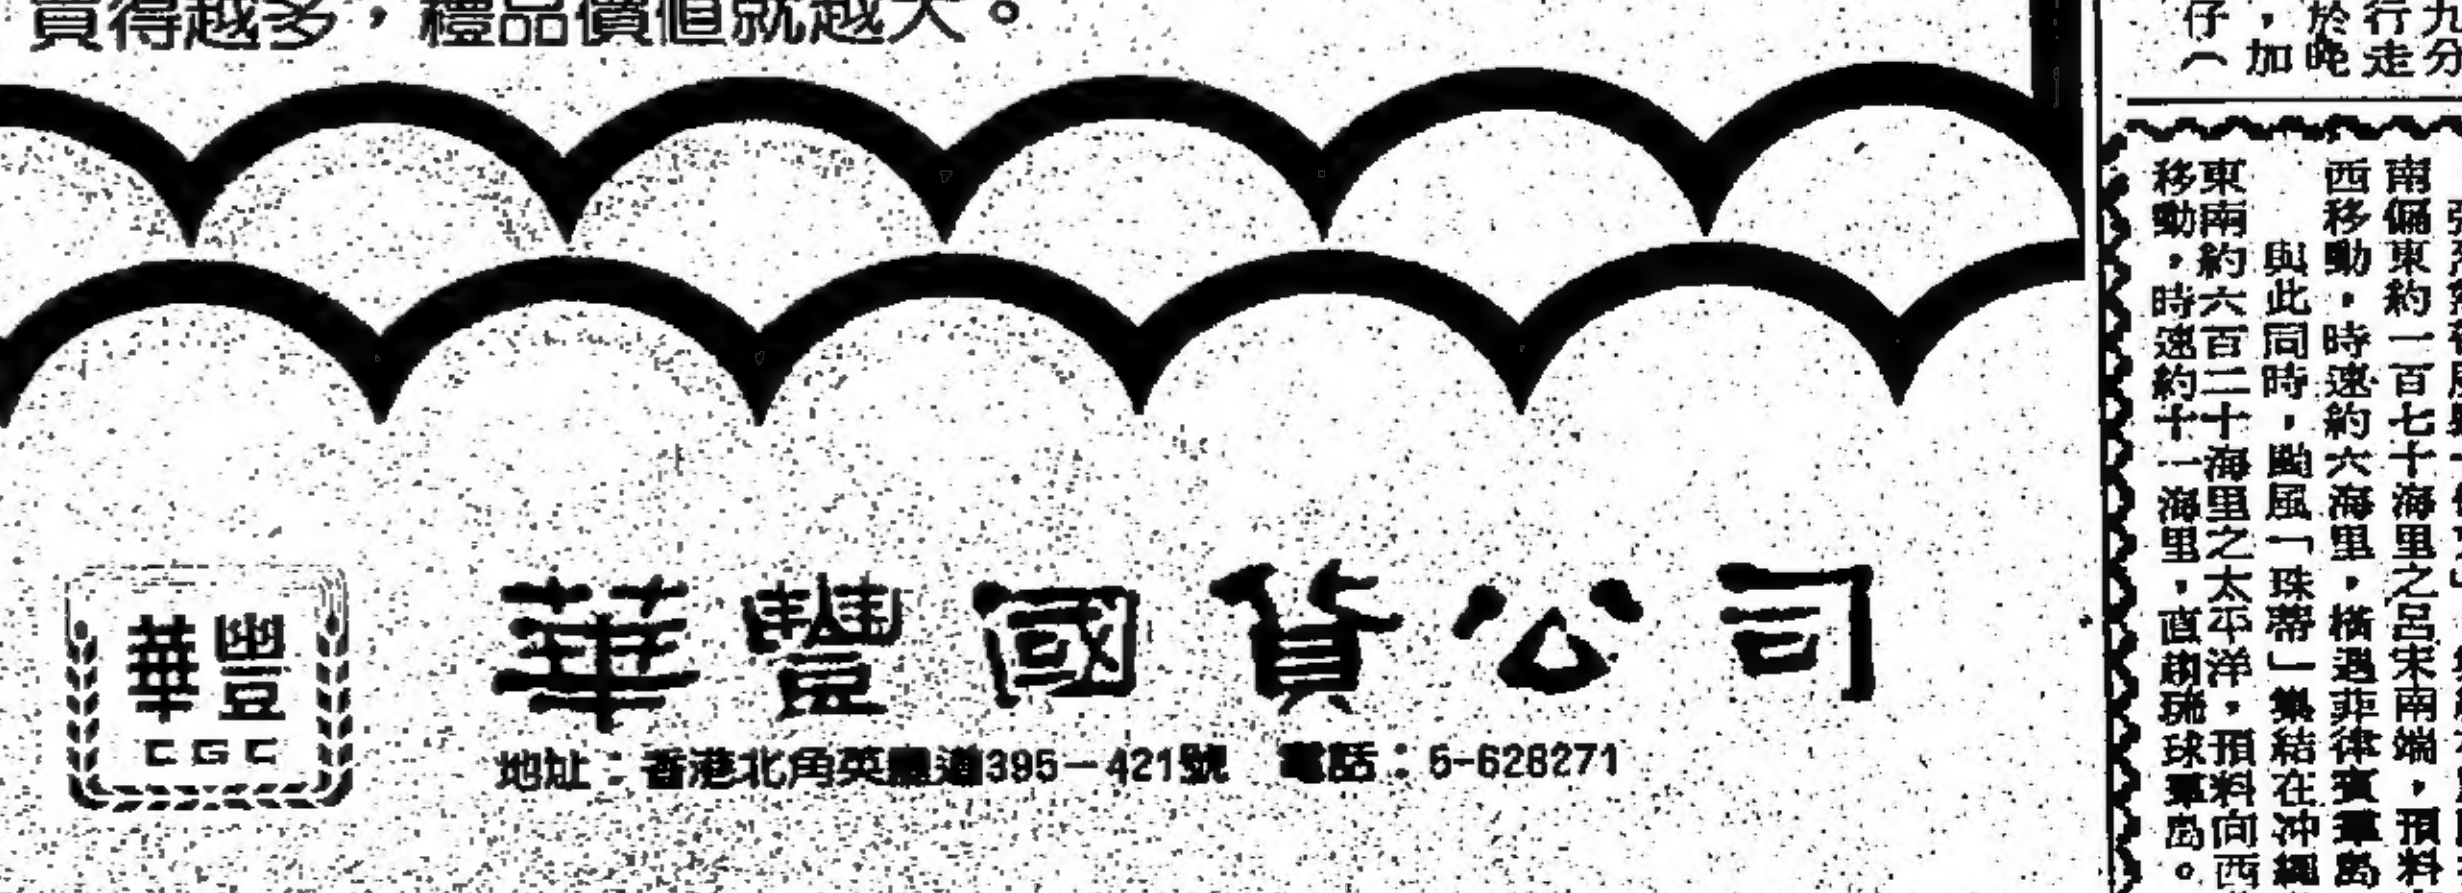 買得越多，禮品價值就越大。
華豐
CGC
華豐國貨公司
地址：香港北角英皇道395－421號　電話：5-628271
九分
行走
於晚
，加
仔（
南偏東約一百七十海里之呂宋南端，預料
西移動，時速約六海里，橫過菲律賓羣島
與此同時，颱風「珠蒂」集結在冲繩
東南約六百二十海里之太平洋，預料向西
移動，時速約十一海里，直趨琉球羣島。